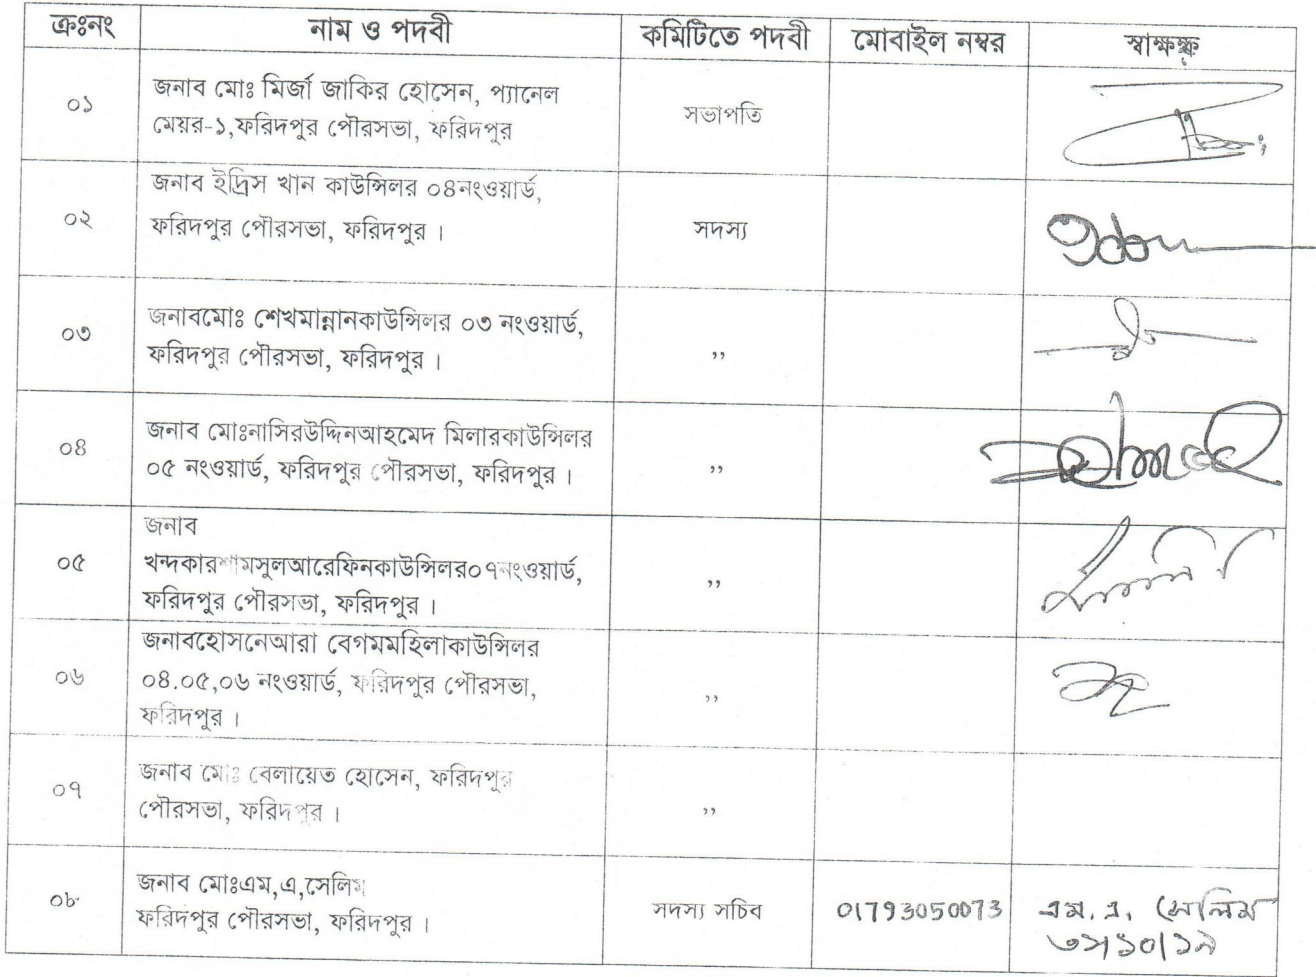 ক্রঃনং নাম ও পদবী কমিটিতে পদবী মোবাইল নম্বর স্বাক্ষ
০১ জনাব মোঃ মির্জা জাকির হোসেন, প্যানেল সভাপতি
মেয়র-১,ফরিদপুর পৌরসভা, ফরিদপুর
০২ জনাব ইদ্রিস খান কাউন্সিলর ০৪নংওয়ার্ড, সদস্য
ফরিদপুর পৌরসভা, ফরিদপুর ।
০৩ জনাবমোঃ শেখমান্নানকাউন্সিলর ০৩ নংওয়ার্ড, ,,
ফরিদপুর পৌরসভা, ফরিদপুর ।
০৪ জনাব মোঃনাসিরউদ্দিনআহমেদ মিলারকাউন্সিলর ,,
০৫ নংওয়ার্ড, ফরিদপুর পৌরসভা, ফরিদপুর ।
জনাব
০৫ খন্দকারশামসুলআরেফিনকাউন্সিলর০৭নংওয়ার্ড, ,,
ফরিদপুর পৌরসভা, ফরিদপুর ।
জনাবহোসনেআরা বেগমমহিলাকাউন্সিলর
০৬ ০৪.০৫,০৬ নংওয়ার্ড, ফরিদপুর পৌরসভা, ,,
ফরিদপুর ।
০৭ জনাব মোঃ বেলায়েত হোসেন, ফরিদপুর ,,
পৌরসভা, ফরিদপুর ।
০৮ জনাব মোঃএম,এ,সেলিম সদস্য সচিব 01793050073 এম. এ. সেলিম
ফরিদপুর পৌরসভা, ফরিদপুর ।